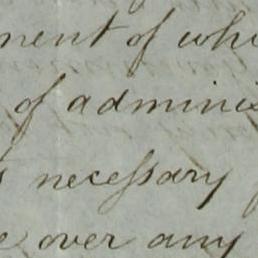 ment of whi
of adminis
necessary
over any